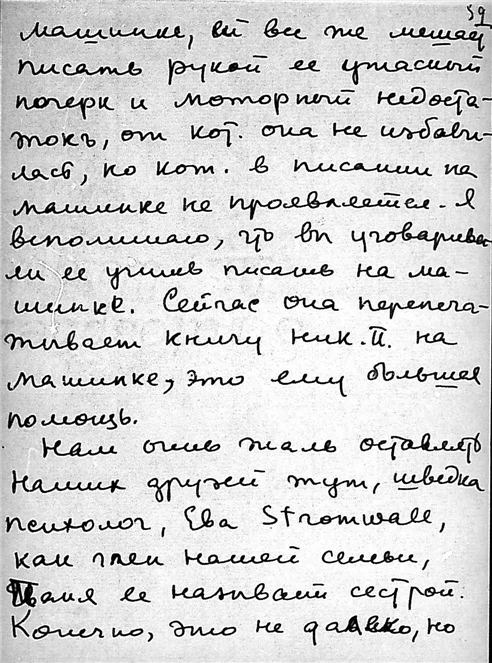 59
машинке, ей все же мешает
писать рукой ее ужасный
почерк и моторный недоста-
токъ, от кот. она не избави-
лась, но кот. в писании на
машинке не проявляется. Я
вспоминаю, что вы уговарива-
ли ее учить писать на ма-
шинке. Сейчас она перепеча-
тывает книгу Ник. П. на
машинке, это ему большая
помощь.
Нам очень жаль оставлять
наших друзей тут, шведка
психолог, Ева Stromwall,
как член нашей семьи,
Таня ее называет сестрой.
Конечно, это не далеко, но